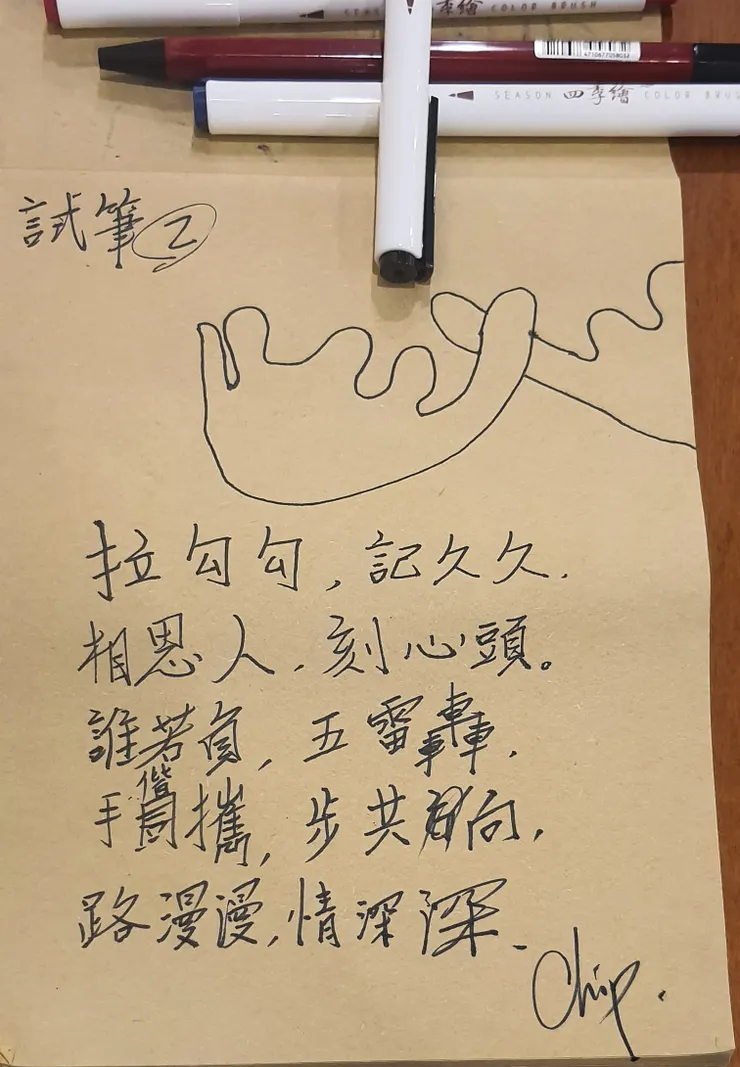 SEASON 四季繪 COLOR BRUSH
4710677058032
SEASON 四季繪 COLOR BRUS
試筆②
拉勾勾,記久久.
相思人.刻心頭。
誰若負,五雷轟.
手偕攜,步共向,
路漫漫,情深深.
Chip.